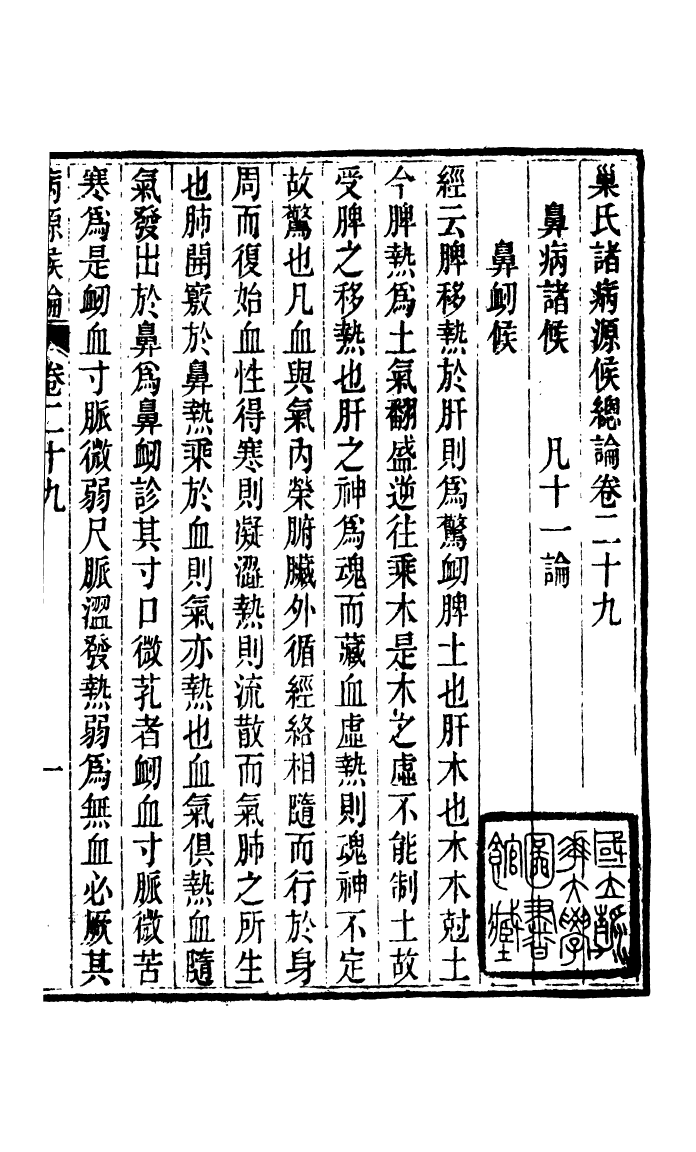 巢氏諸病源候總論卷二十九
鼻病諸候　凡十一論
鼻衂候
經云脾移熱於肝則爲驚衂脾土也肝木也木本尅土
今脾熱爲土氣翻盛逆往乘木是木之虛不能制土故
受脾之移熱也肝之神爲魂而藏血虛熱則魂神不定
故驚也凡血與氣內榮腑臟外循經絡相隨而行於身
周而復始血性得寒則凝澀熱則流散而氣肺之所生
也肺開竅於鼻熱乘於血則氣亦熱也血氣俱熱血隨
氣發出於鼻爲鼻衂診其寸口微芤者衂血寸脈微苦
寒爲是衂血寸脈微弱尺脈澀發熱弱爲無血必厥其
病源候論　卷二十九　一
國立
大學
圖書
館藏